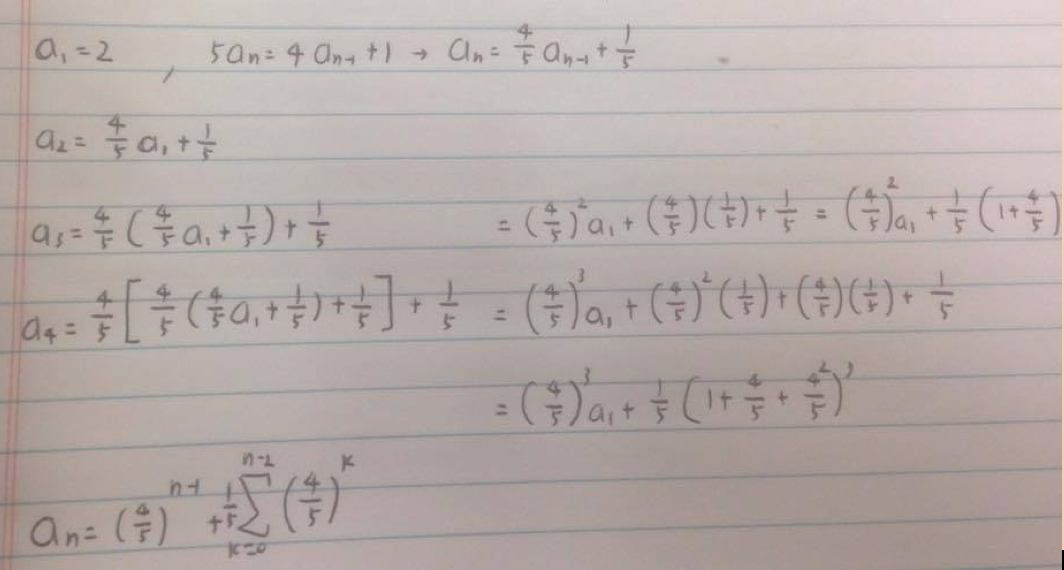 a₁ = 2 , 5aₙ = 4aₙ₋₁ + 1 → aₙ = 4/5 aₙ₋₁ + 1/5
a₂ = 4/5 a₁ + 1/5
a₃ = 4/5 (4/5 a₁ + 1/5) + 1/5 = (4/5)² a₁ + (4/5)(1/5) + 1/5 = (4/5)² a₁ + 1/5 (1 + 4/5)
a₄ = 4/5 [4/5 (4/5 a₁ + 1/5) + 1/5] + 1/5 = (4/5)³ a₁ + (4/5)² (1/5) + (4/5)(1/5) + 1/5
= (4/5)³ a₁ + 1/5 (1 + 4/5 + 4²/5)³
aₙ = (4/5)ⁿ⁻¹ + 1/5 ∑_{k=0}^{n-2} (4/5)^k